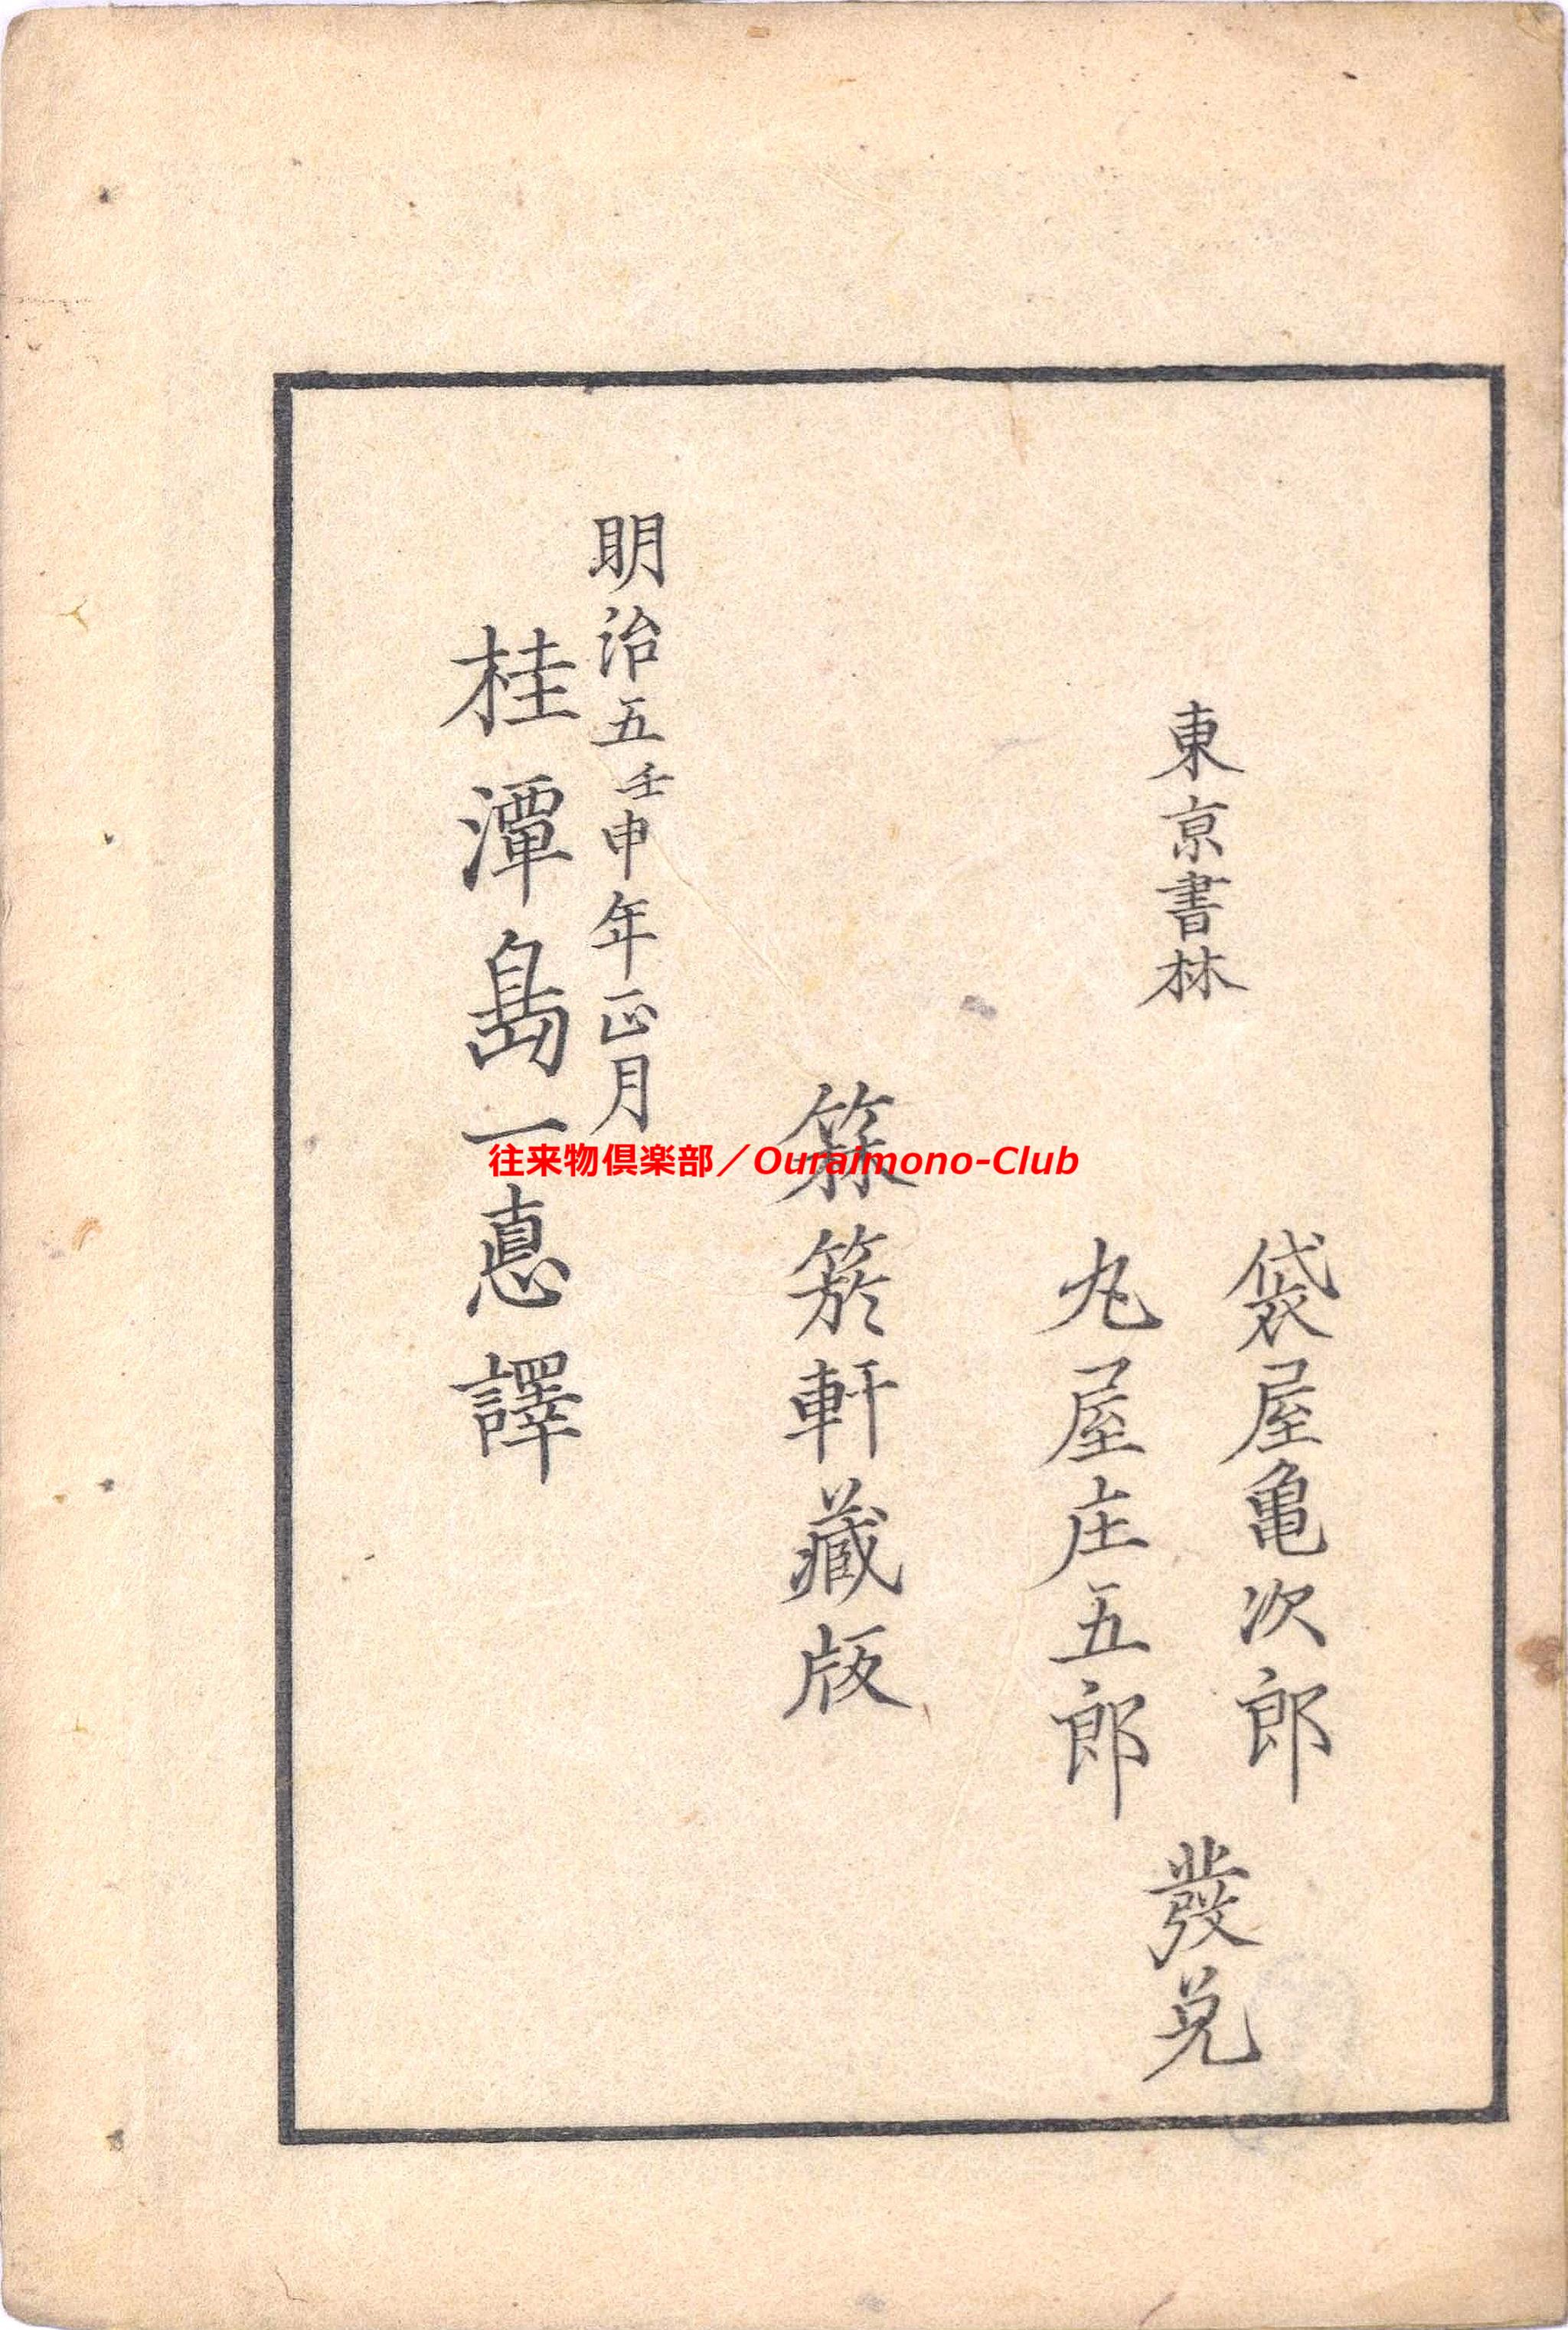 東亰書林
袋屋亀次郎
丸屋庄五郎
發兌
箖箊軒藏版
明治五壬申年正月
桂潭島一悳譯
往来物倶楽部／Ouraimono-Club